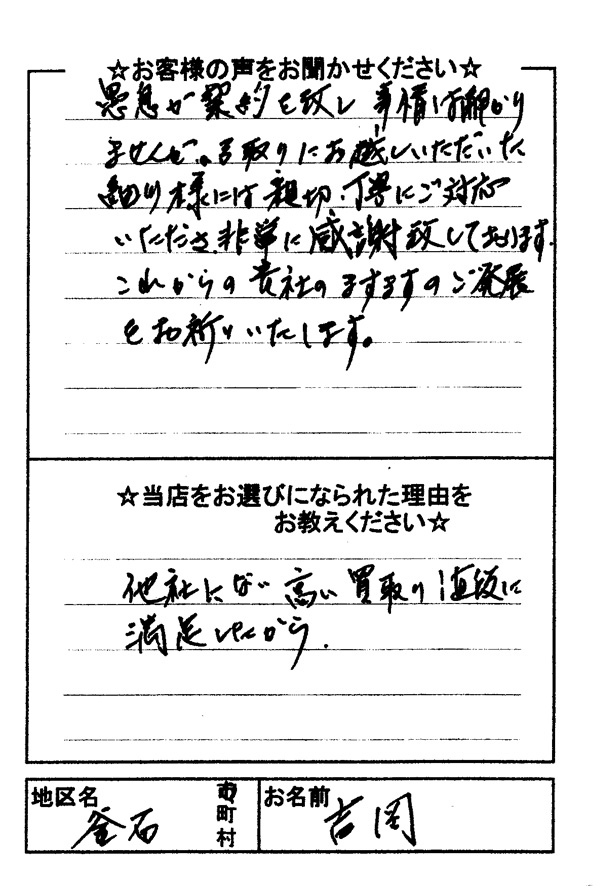 ☆お客様の声をお聞かせください☆
愚息が契約を致し 事情は解かり
ませんが、引取りにお越しいただいた
細川様には親切、丁寧にご対応
いただき、非常に感謝致しております。
これからの貴社のますますのご発展
をお祈りいたします。
☆当店をお選びになられた理由を
お教えください☆
他社にない高い買取り値段に
満足したから.
地区名 釜石 市町村
お名前 吉岡